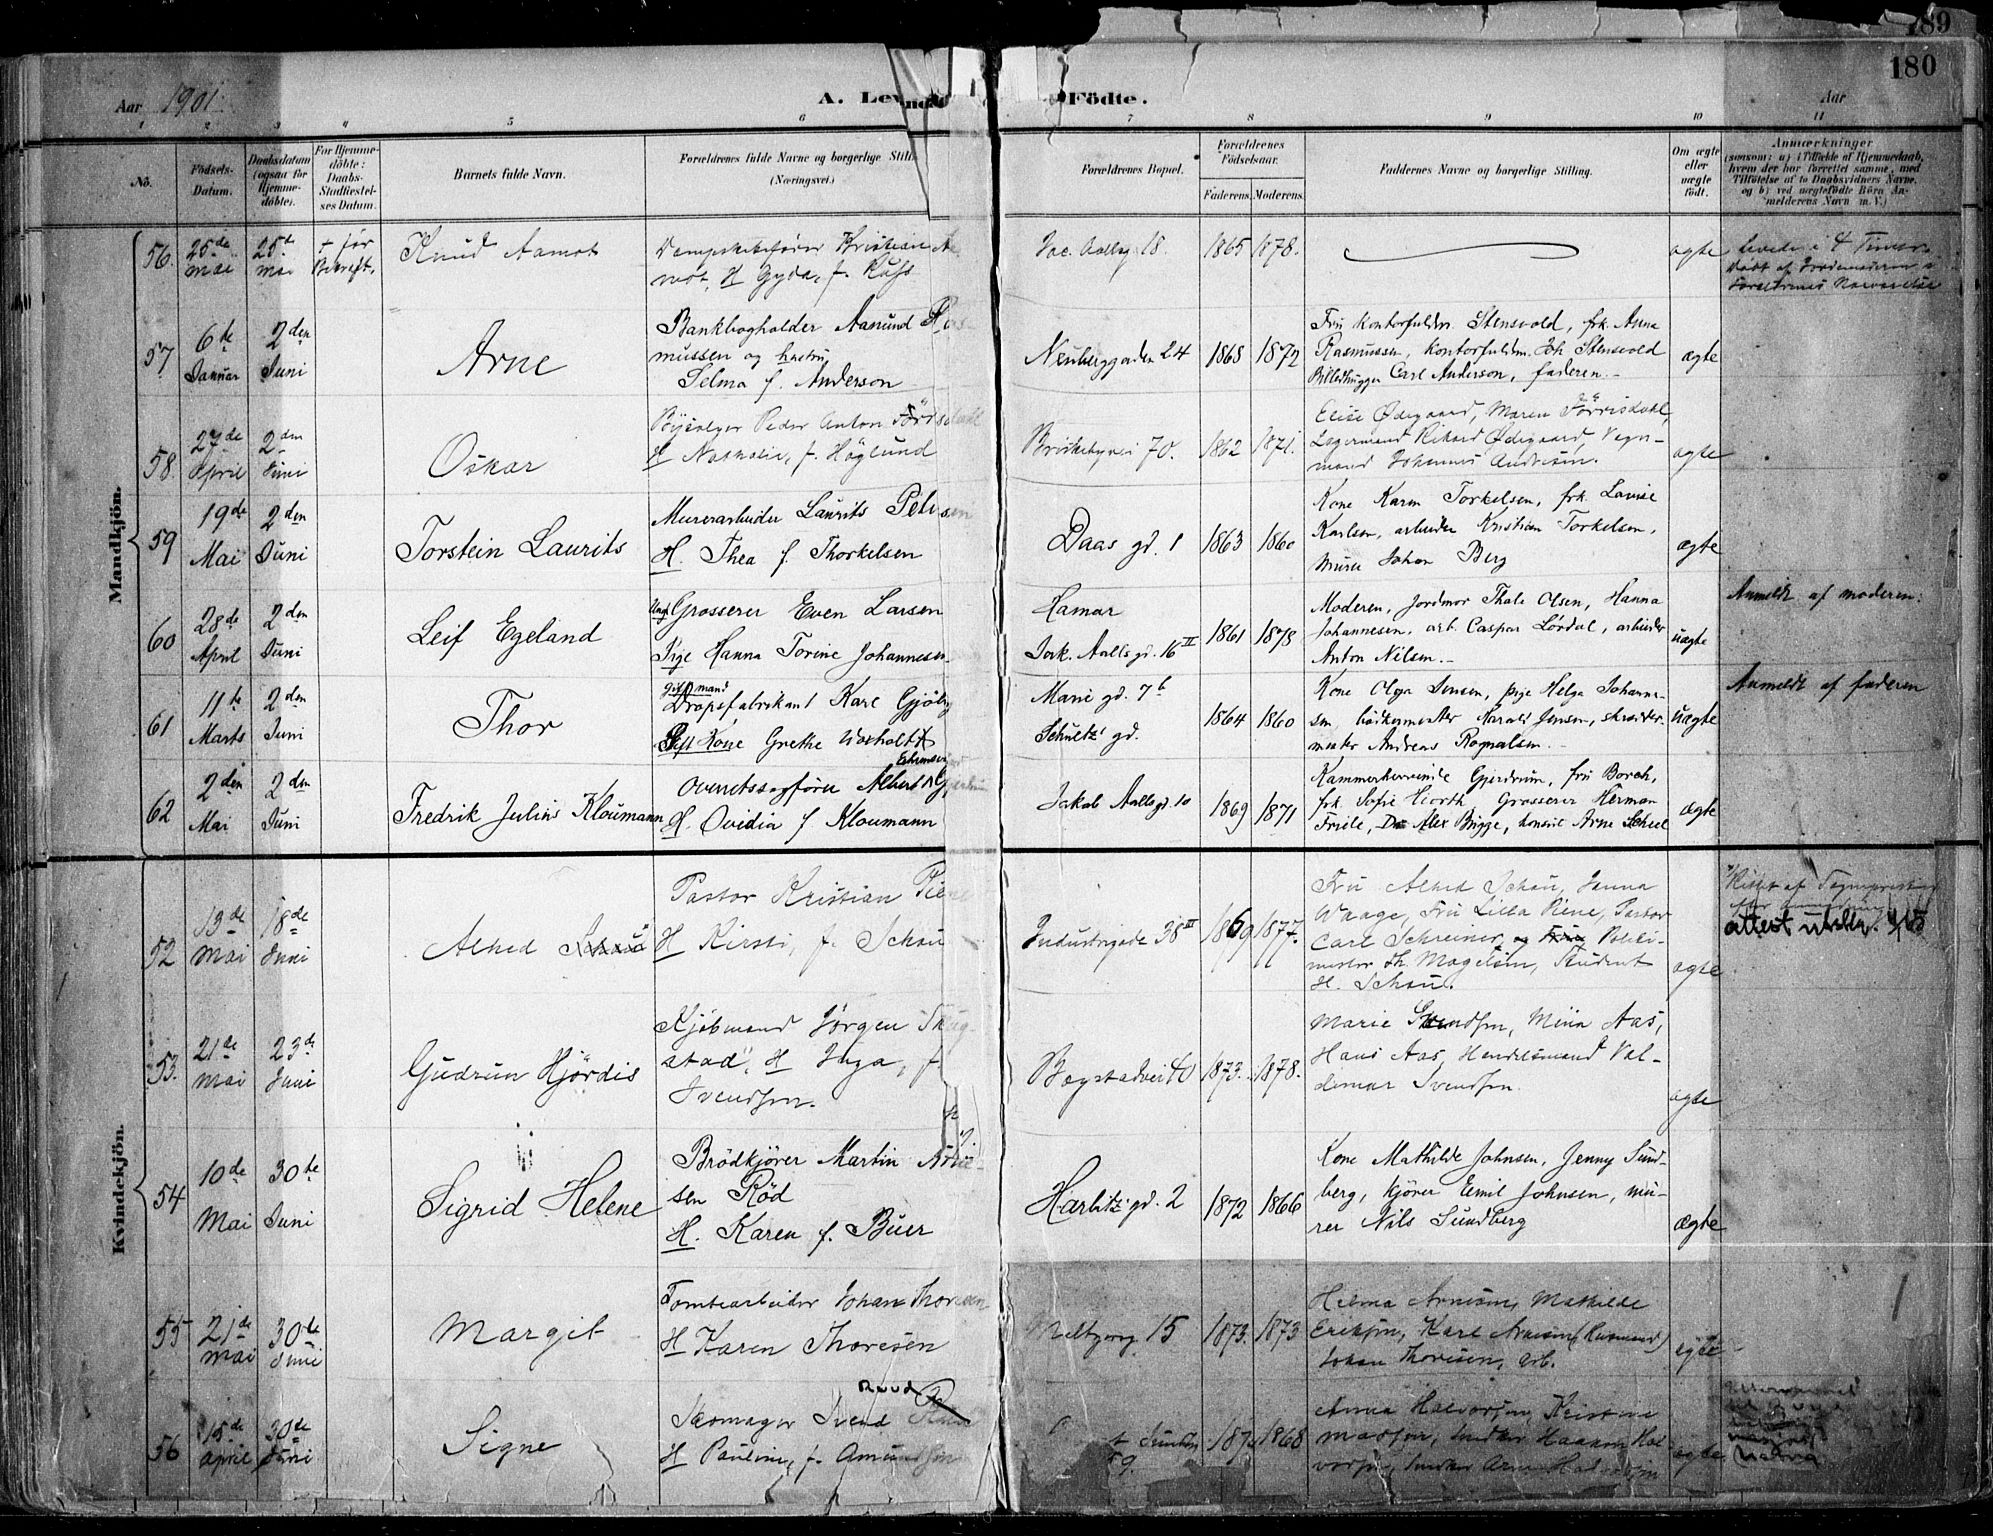 189
180
Aar 1901.
A. Levende Födte.
Aar
1 2 3 4 5 6 7 8 9 10 11
No.
Födsels-Datum.
Daabsdatum (ogsaa for Hjemme-döbte).
For Hjemme-döbte: Daabs-Stadfæstelses Datum.
Barnets fulde Navn.
Forældrenes fulde Navne og borgerlige Stilling (Næringsvei.)
Forældrenes Bopæl.
Forældrenes Födselsaar.
Faderens. Moderens.
Faddernes Navne og borgerlige Stilling.
Om ægte eller uægte födt.
Anmærkninger
(saasom: a) i Tilfælde af Hjemmedaab, hvem der har forrettet samme, med Tilföielse af to Daabsvidners Navne, og b) ved uægtefödte Börn Anmelderens Navn m. V.)
Mandkjön.
56. 25de mai 25de mai + før Bekræft. Knud Aamot
Dampskibsfører Kristian Aa-
mot, H Gyda, f. Kuhs
Jac. Aallsg 18. 1865 1878. ægte
Levede i 4 Timer.
Døbt af Jordemoderen i
Foreldrenes Nærværelse
57 6te Januar 2den Juni Arne
Bankbogholder Aamund Ras-
mussen og hustru
Selma f. Anderson
Neuberggaden 24 1868 1872
Fru kontorfuldm. Stensvold, frk. Anna
Rasmussen, kontorfuldm. Joh Stensvold
Billedhugger Carl Anderson, faderen.
ægte
58. 27de April 2den Juni Oskar
Bysælger Peder Anton
H Nathalie, f. Höglund
Briskebyvei 70. 1862 1871.
Elise Ødegaard, Maren Jörrisdahl,
Lagermand Rikard Ødegaard, Vogn-
mand Johannes Andresen.
ægte
59 19de Mai 2den Juni Torstein Laurits
Murerarbeider Laurits Petersen
H. Thea f. Thorkelsen
Daas gd. 1 1863 1860
Kone Karen Torkelsen, frk. Lovise
Karlsen, arbeider Kristian Torkelsen,
murer Johan Berg
ægte
60 28de April 2den Juni Leif Egeland
Ungk Grosserer Even Larsen
Pige Hanna Torine Johannesen
Hamar
Jak. Aalls gd. 16 II 1861 1878
Moderen, Jordmor Thale Olsen, Hanna
Johannesen, arb. Caspar Lördal, arbeider
Anton Nilsen.
uægte
Anmeldt af moderen.
61 11te Marts 2den Juni Thor
gift mand
Dropsfabrikant Karl Gjöby
Gift Kone Grethe Woxholt
Marie gd. 7 b
Schultz' gd. 1864 1860
Kone Olga Jensen, pige Helga Johanne-
sen, bödkermester Harald Jensen, skrædder-
mester Andreas Rognalsen.
uægte
Anmeldt af faderen
62 2den Mai 2den Juni Fredrik Julius Kloumann
Overretssagförer Albert Gjerdrum
H. Ovidia f Kloumann
Jakob Aalls gd. 10 1869 1871
Kammerherreinde Gjerdrum, fru Borch,
frk. Sofie Hiorth, Grosserer Herman
Friele, Dr Alex Brigge, konsul Arne Scheel
ægte
Kvindekjön.
52 13de mai 18de Juni Alhed Schou
Pastor Kristian Piene
H Kirsti, f. Schou
Industrigade 38 III 1869 1877.
Fru Alhed Schou, Janna
Waage, Fru Lilla Piene, Pastor
Carl Schreiner, og Politi-
mester Th. Magelsen, Student
H. Schou.
ægte
attest utst.
53. 21de mai 23de Juni Gudrun Hjördis
Kjöbmand Jørgen Skug-
stad, H Inga, f.
Svendsen.
Bogstadvei 40 1873. 1878.
Marie Svendsen, Minn Aas,
Hans Aas, Handelsmand Val-
demar Svendsen.
ægte
54 10de Mai 30te Juni Sigrid Helene
Brödkjörer Martin
sen Röd
H. Karen f. Buer
Harbitz' gd. 2 1872 1866
Kone Mathilde Johnsen, Jenny Sund-
berg, kjörer Emil Johnsen, mu-
rer Nils Sundberg
ægte
55 21de mai 30te Juni Margit
Tomtearbeider Johan Thoresen
H Karen Thoresen
Meltzersg 15 1873. 1873
Helma Arnesen, Mathilde
Eriksen, Karl Arnesen
Johan Thoresen, arb.
ægte
56 15de april 30de Juni Signe
Ruud
Skomager Svend
H Pauline, f. Amundsen
9. 1868
Anna Halvorsen, Kristine
Madsen, Snedker Haakon Hal-
vorsen, Snedker Arne Halvorsen
ægte